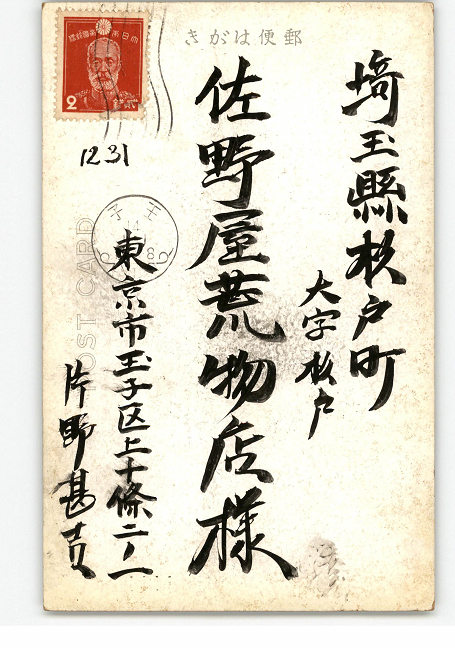 郵便はがき
大日本帝國郵便
2
12.31
王子
POST CARD
埼玉縣杉戸町
大字杉戸
佐野屋荒物店様
東京市王子区上十條二ノ一
片野甚吉